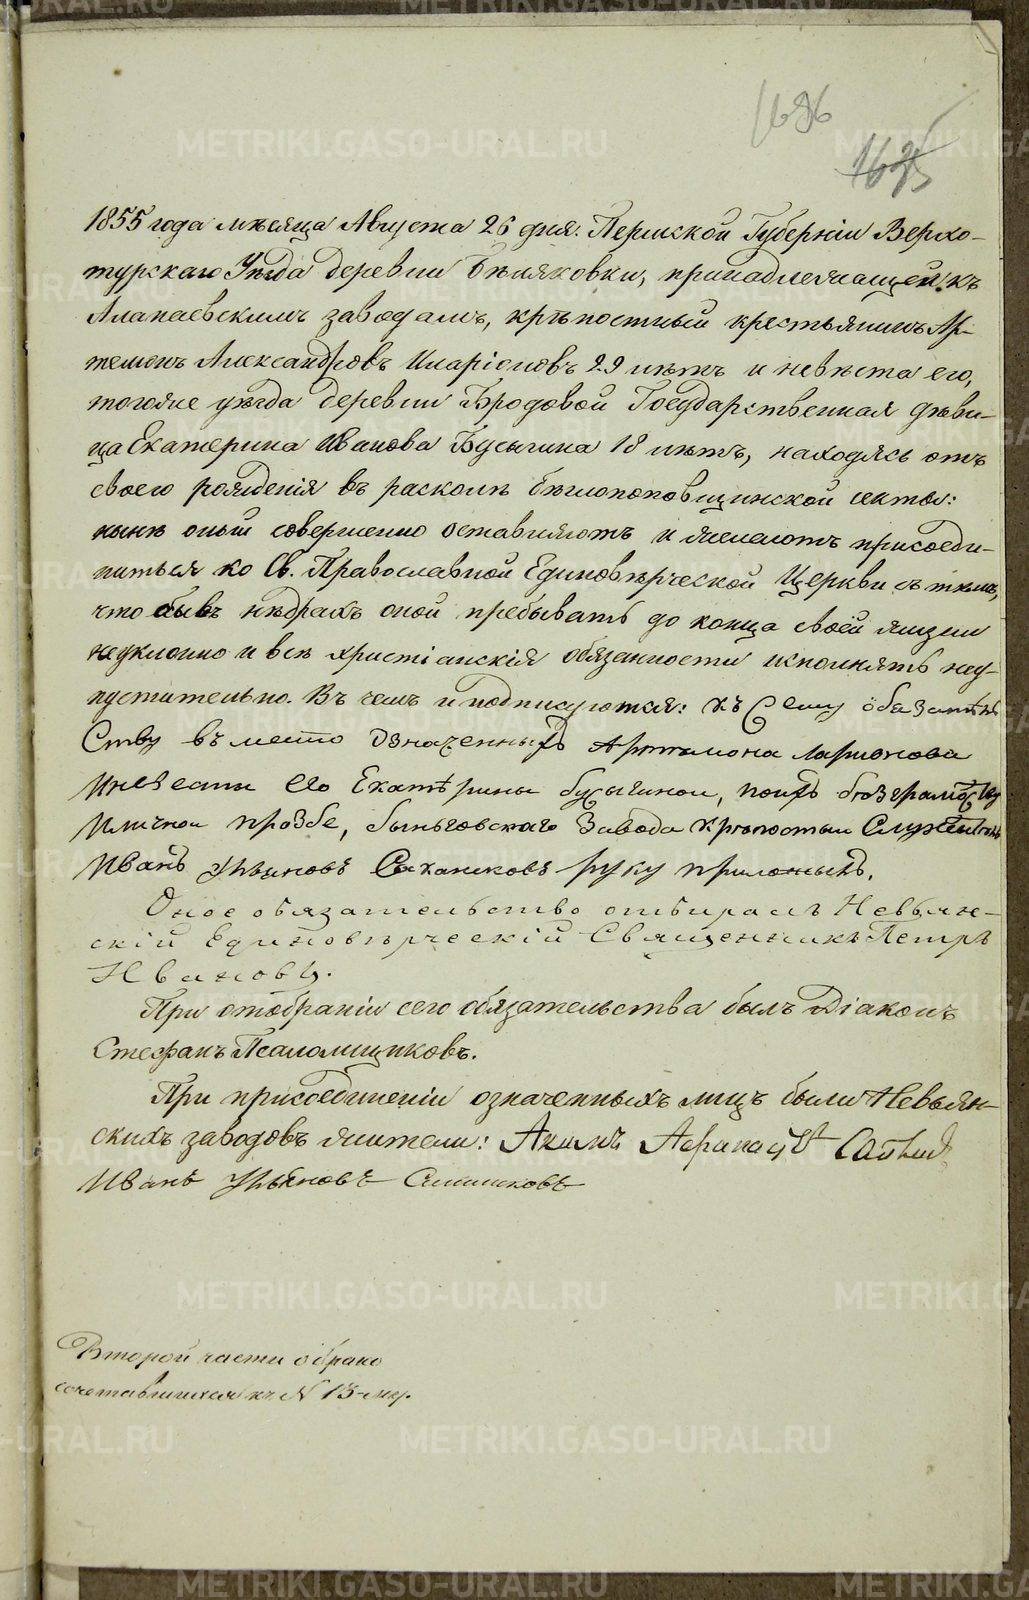 METRIKI.GASO-URAL.RU
1686
1685
1855 года мѣсяца Августа 26 дня. Пермской Губерніи Верхо-
турскаго Уѣзда деревни Бѣляковки, принадлежащей къ
Алапаевскимъ заводамъ, крѣпостный крестьянинъ Ар-
темонъ Александровъ Иларіоновъ 29 лѣтъ и невѣста его,
тогоже уѣзда деревни Бродовой Государственная дѣви-
ца Екатерина Иванова Бусыгина 18 лѣтъ, находясь отъ
своего рожденія въ расколѣ бѣглопоповщинской секты:
нынѣ оный совершенно оставляютъ и желаютъ присоеди-
ниться ко Св. Православной Единовѣрческой Церкви съ тѣмъ,
что бывъ нѣдрахъ оной пребывать до конца своей жизни
неуклонно и всѣ христіанскія обязанности исполнять неу-
пустительно. Въ чемъ и подписуются: къ Сему обезателъ
Ству въместо означенныхъ Артамона Ларионова
Иневести его Екатѣрины бусыгиной, поихъ
Иличной прозбе, быньговскаго Завода крѣпостный
Иванъ Ульяновъ руку приложилъ.
Оное обязательство отбиралъ Невьян-
скій Единовѣрческій Священникъ Петръ
Ивановъ.
При отобраніи сего обязательства былъ Діаконъ
Стефанъ Псаломщиковъ.
При присоединеніи означенныхъ лицъ были Невьян-
скихъ заводовъ жители: Акимъ
Иванъ Ульяновъ
Второй части о брако
сочетавшихся къ N 13-му.